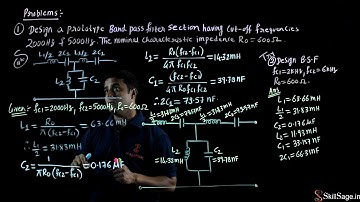 Problems:-
① Design a prototype Band pass filter section having cut-off frequencies
2000Hz & 5000Hz. The nominal characteristic impedance R₀ = 600Ω.
L1/2 2C1 L1/2 2C1
L2 C2
Given:- fc1=2000Hz, fc2=5000Hz, R₀=600Ω
L1 = R₀ / π(fc2-fc1) = 63.66mH
∴ L1/2 = 31.83mH
C2 = 1 / πR₀(fc2-fc1) = 0.176μF
L2 = R₀(fc2-fc1) / 4π fc1fc2 = 14.32mH
C1 = (fc2-fc1) / 4πR₀fc1fc2 = 39.78nF
∴ 2C1 = 79.57nF
L1/2=31.83mH 2C1=79.57nF L1/2=31.83mH 2C1=79.57nF
14.32mH
② Design B.S.F
fc1=2kHz, fc2=6kHz
Ans
L1 = 63.66mH
L1/2 = 31.83mH
C2 = 0.176μF
L2 = 11.93mH
C1 = 33.157nF
2C1 = 66.31nF
SkillSage.in